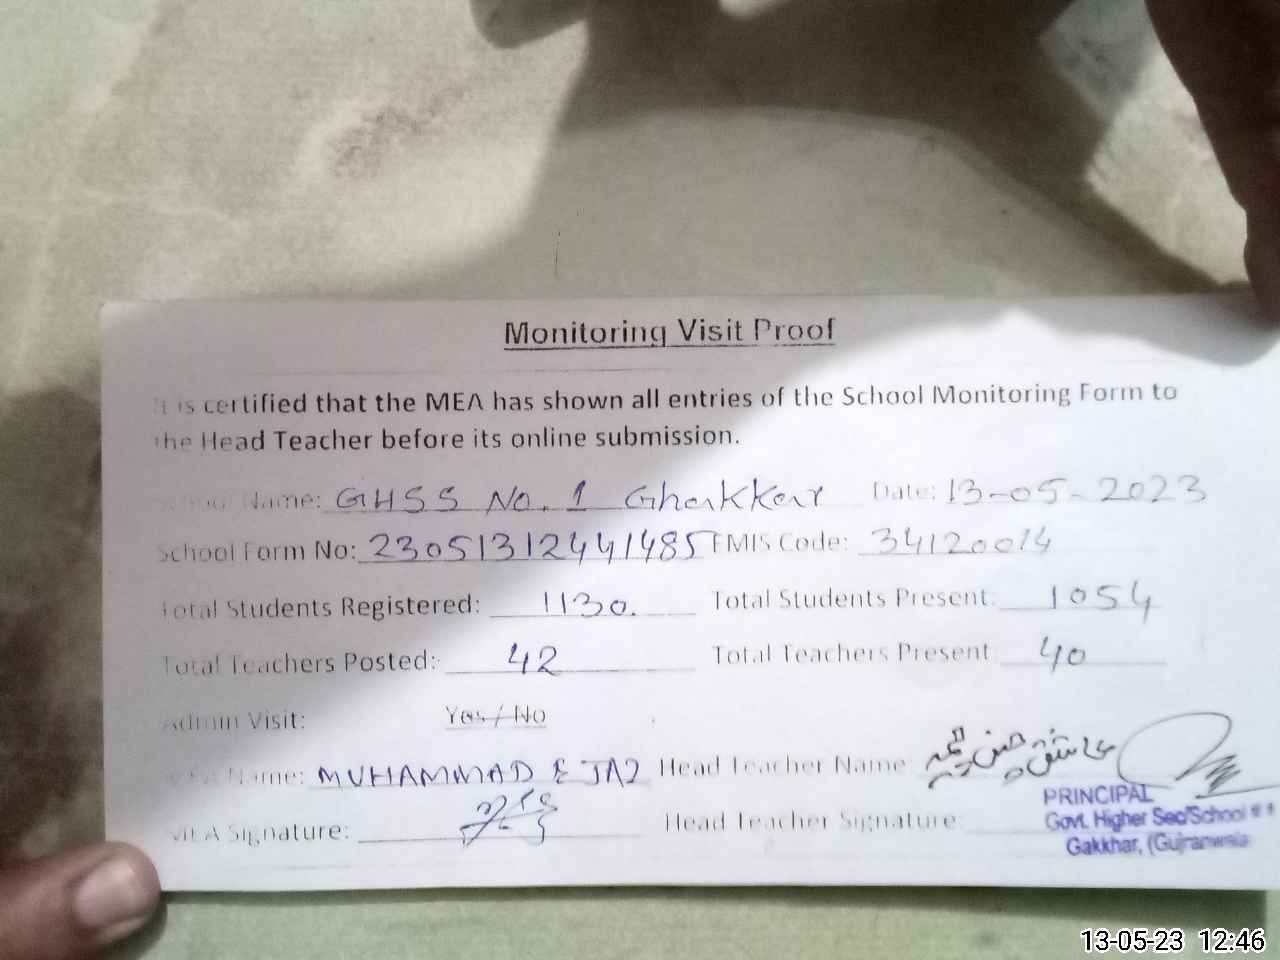 Monitoring Visit Proof
It is certified that the MEA has shown all entries of the School Monitoring Form to
the Head Teacher before its online submission.
School Name: GHSS No. 1 Ghakkar Date: 13-05-2023
School Form No: 23051312441485 EMIS Code: 34120014
Total Students Registered: 1130. Total Students Present: 1054
Total Teachers Posted: 42 Total Teachers Present 40
Admin Visit: Yes / No
MEA Name: MUHAMMAD EJAZ Head Teacher Name:
MEA Signature: Head Teacher Signature:
PRINCIPAL
Govt. Higher Sec/School # 1
Gakkhar, (Gujranwala
13-05-23 12:46